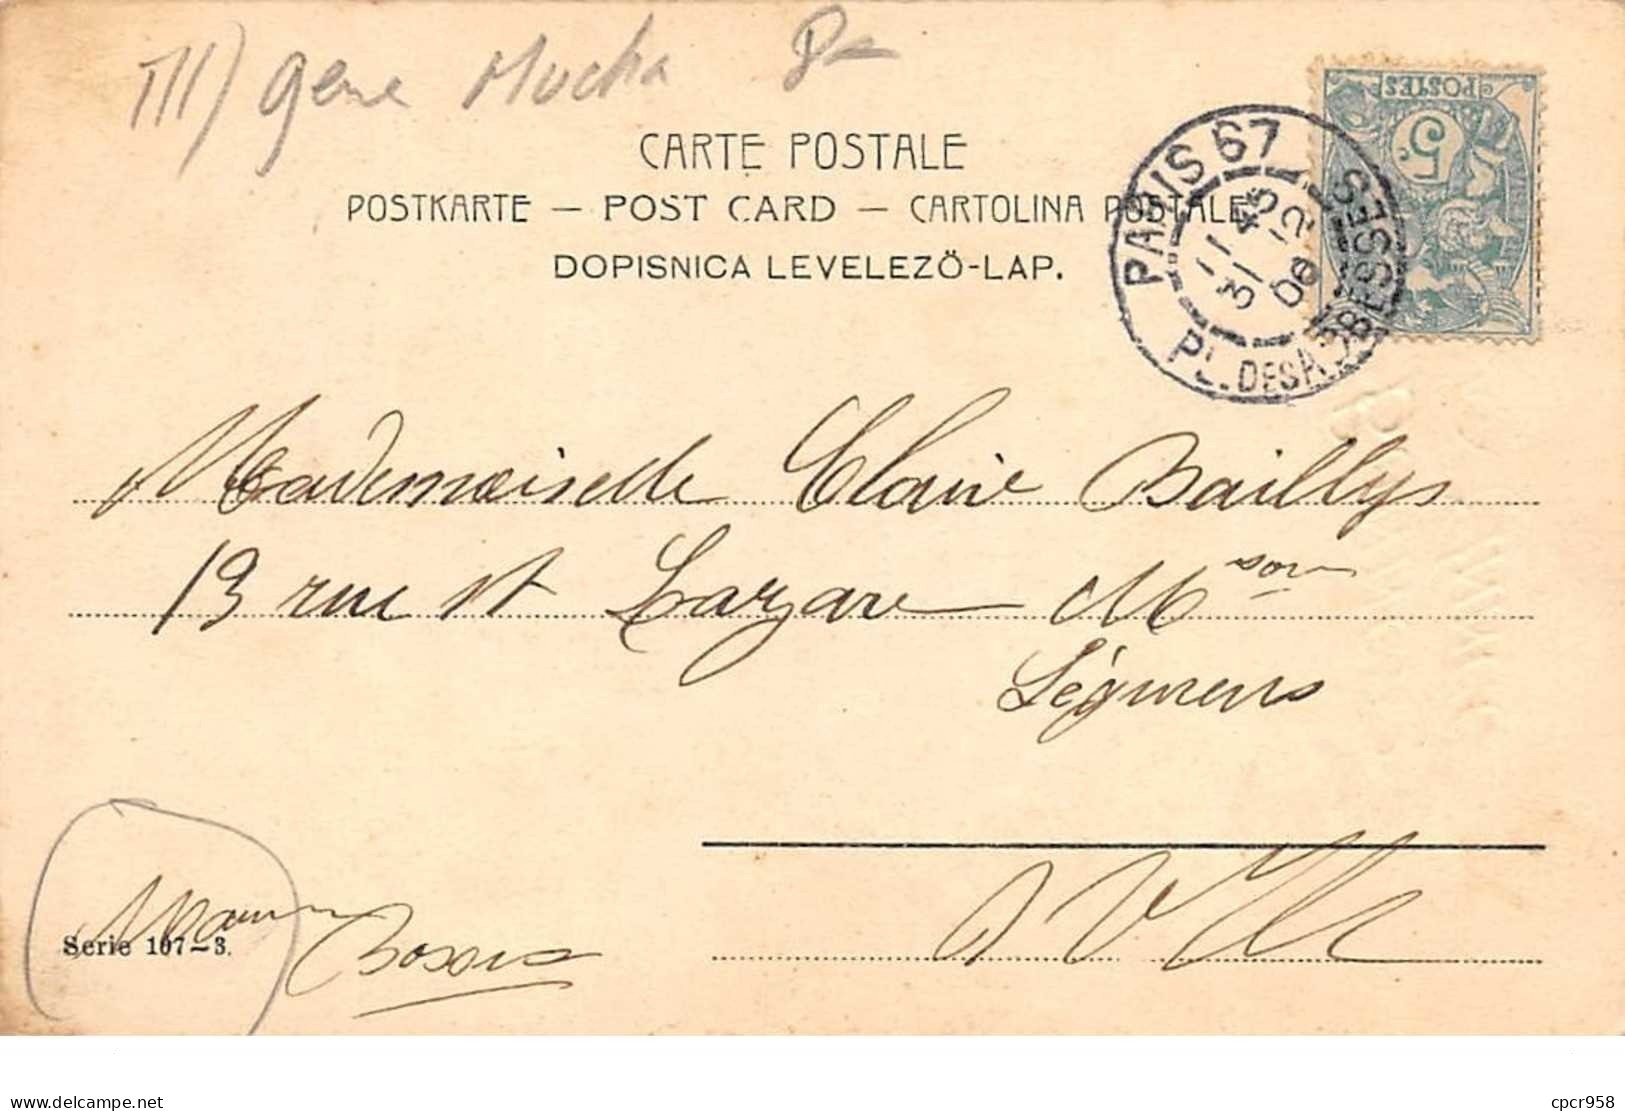 III) gene Mucha
CARTE POSTALE
POSTKARTE — POST CARD — CARTOLINA POSTALE
DOPISNICA LEVELEZÖ-LAP.
POSTES
5 c
PARIS 67
PL. DES ABBESSES
Mademoiselle Claire Baillys
13 rue St Lazare Mson
E.V.
Serie 107—3.
delcampe.net
cpcr958